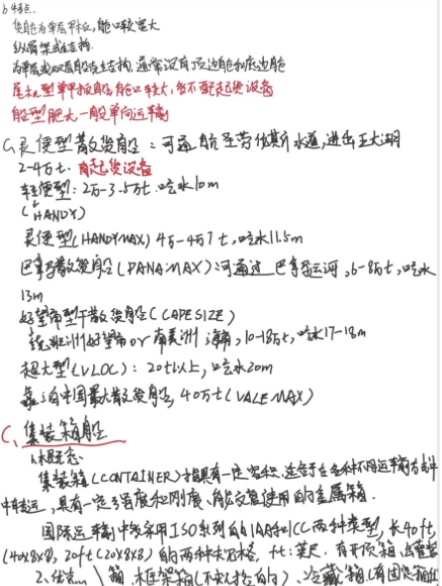 b 特点:
货舱为单层甲板,舱口较宽大
纵骨架式结构
为单层或双层船壳结构 通常设有顶边舱和底边舱
尾机型单甲板船,舱口较大,多不配起货设备
船型肥大一般单向运输
C,灵便型散货船:可通航圣劳伦斯水道,进出五大湖
2-4万t.有起货设备
轻便型:2万-3.5万t.吃水10m
(HANDY)
灵便型(HANDYMAX) 4万-4.5万t,吃水11.5m
巴拿马散货船(PANAMAX):可通过巴拿马运河,6-8万t,吃水
13m
好望角型干散货船(CAPESIZE)
绕非洲好望角or南美洲 海角,10-18万t,吃水17-18m
超大型(VLOC):20t以上,吃水20m
靠泊中国最大散货船,40万t(VALEMAX)
C、集装箱船
1.概念:
集装箱(CONTAINER)指具有一定容积,适合于在各种不同运输方式中
中转运,具有一定强度和刚度、能反复使用的金属箱.
国际运输中多采用ISO系列的1AA和1CC两种类型,长40ft,
(40x8x8), 20ft(20x8x8)的两种、ft:英尺.有开顶箱、
2、箱、框架箱(不规格的)、冷藏箱(有固定